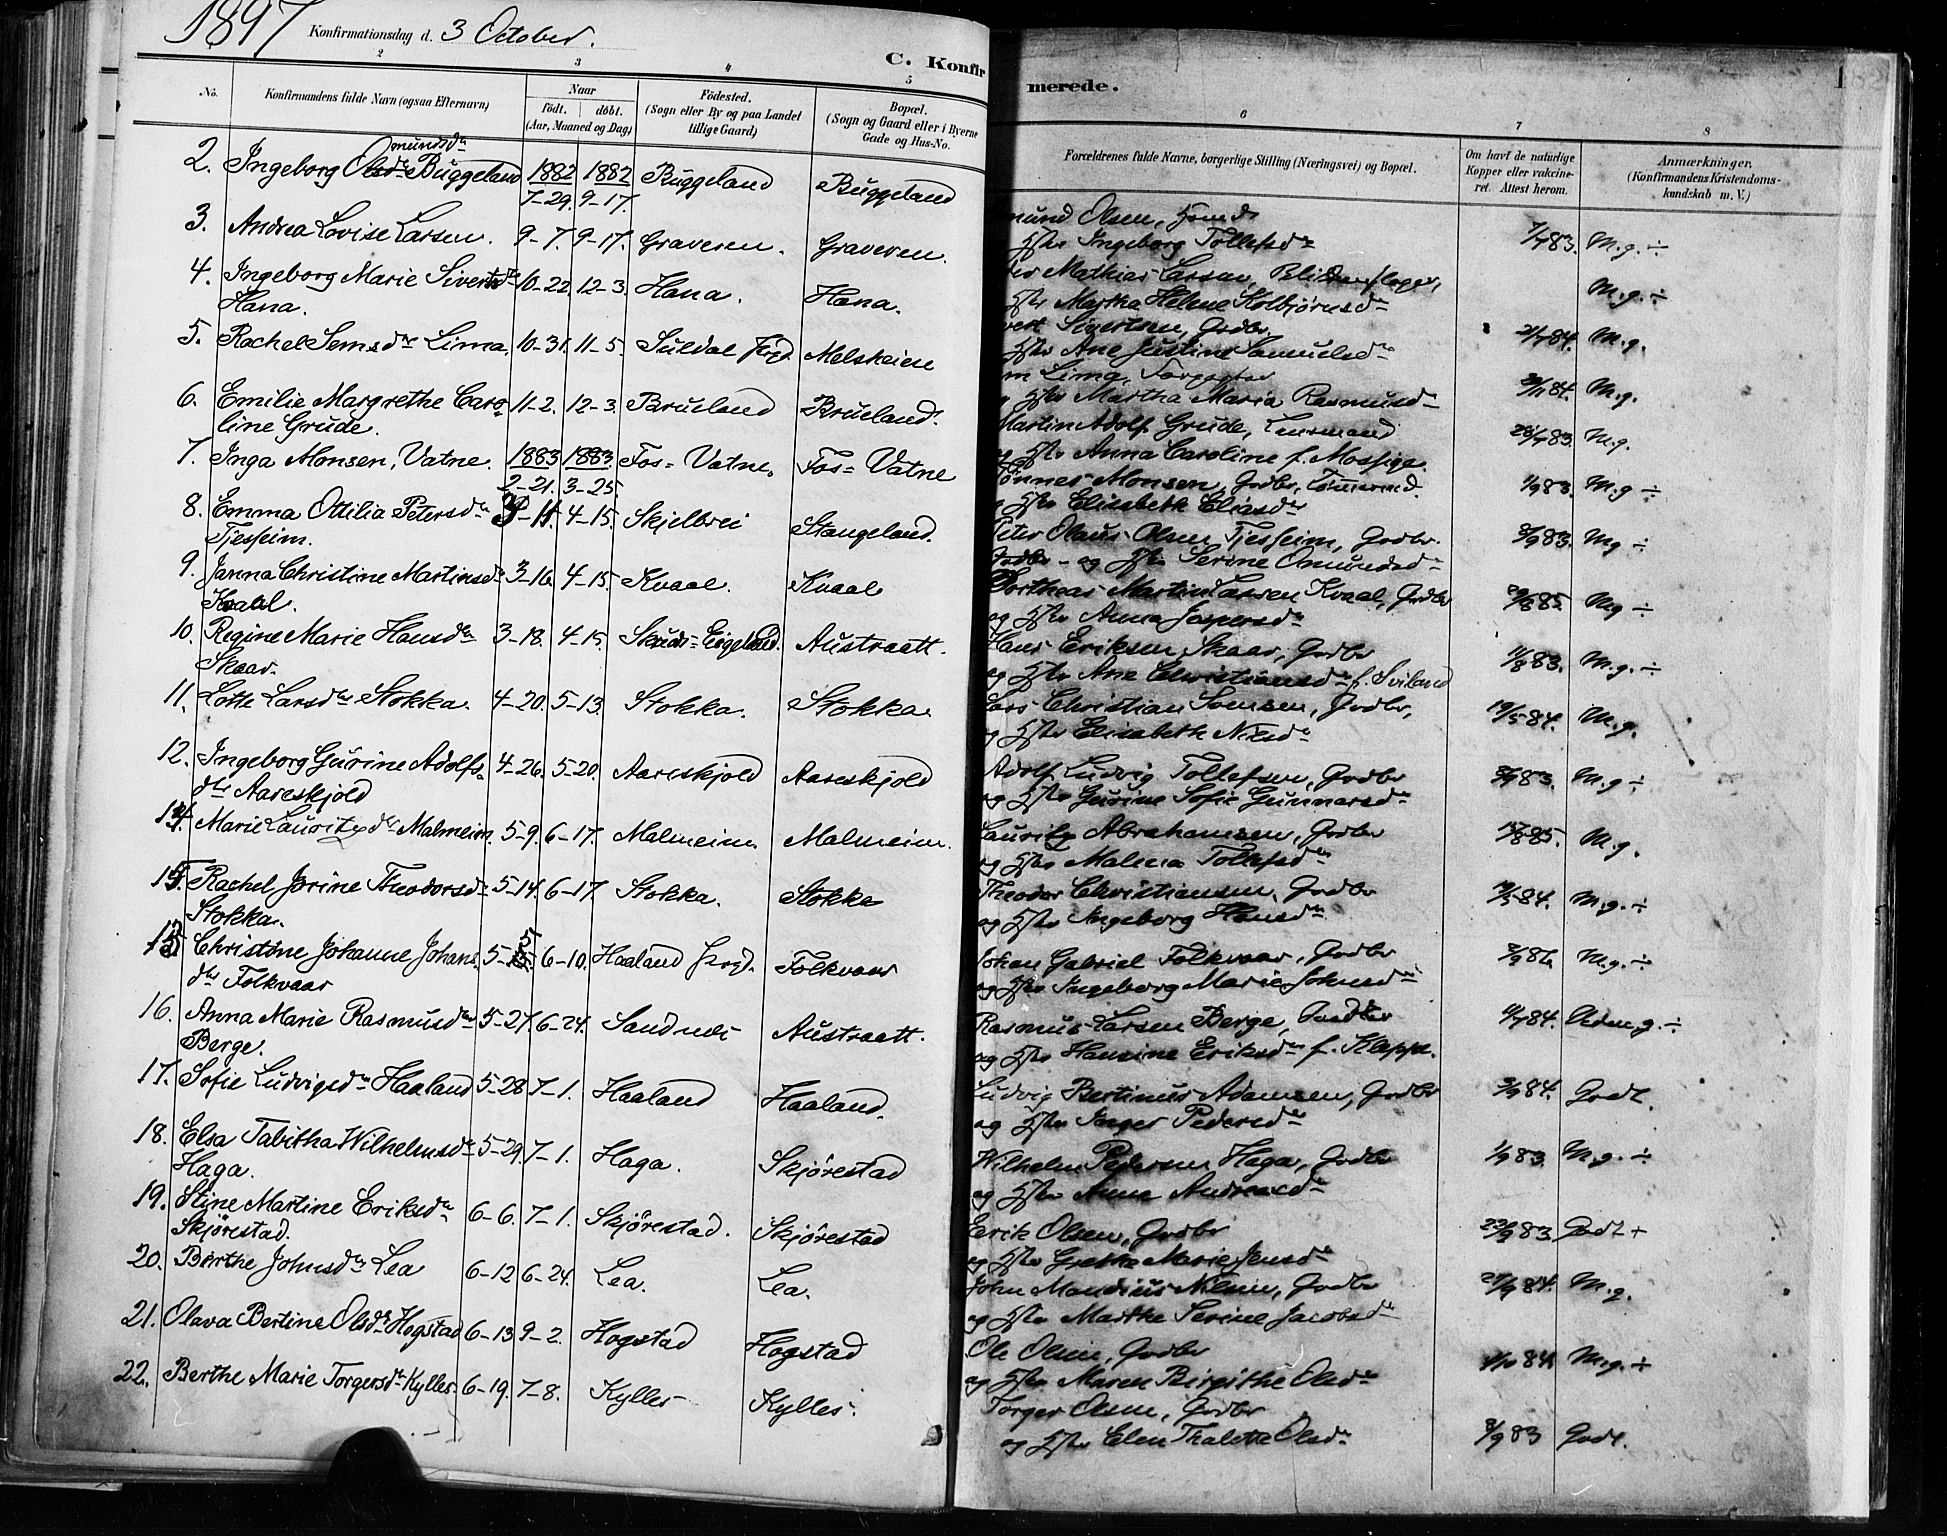 1897 Konfirmationsdag d. 3 October.
C. Konfirmerede.
2 3 4 5 6 7 8
No.
Konfirmandens fulde Navn (ogsaa Efternavn)
Naar
födt. döbt.
(Aar, Maaned og Dag)
Födested.
(Sogn eller By og paa Landet
tillige Gaard)
Bopæl.
(Sogn og Gaard eller i Byerne
Gade og Hus-No.
Forældrenes fulde Navne, borgerlige Stilling (Næringsvei) og Bopæl.
Om havt de naturlige
Kopper eller vakcine-
ret. Attest herom.
Anmærkninger.
(Konfirmandens Kristendoms-
kundskab m. V.)
2. Ingeborg Omundsdr Buggeland 1882 7-29. 1882 9-17. Buggeland Buggeland
mund Olsen, Hustru Ingeborg Tollefsdr 83. M.g. ÷
3. Andrea Lovise Larsen. 9-7. 9-17. Graveren. Graveren.
Mathias Larsen, Hustru Martha Helene Kolbjørnsdr M.g. ÷
4. Ingeborg Marie Sivertsdr Hana. 10-22. 12-3. Hana. Hana.
Sivertsen, Grdbr, Hustru Ane Justine Samuelsdr 84. M.g.
5. Rachel Semsdr Lima. 10-31. 11-5. Suldal Melskeien
Lima, Martha Maria Rasmusdr 84. M.g.
6. Emilie Margrethe Caroline Grude. 11-2. 12-3. Brueland Brueland.
Martin Adolf Grude, Lensmand
og Hustru Anna Caroline f. Mossige 83. M.g.
7. Inga Monsen, Vatne. 1883 2-21. 1883 3-25. Fos-Vatne. Fos-Vatne
Tönnes Monsen, Grdbr,
og Hustru Elisabeth Eliasdr 83. M.g ÷
8. Emma Ottilia Petersdr Tjesseim. 4-15. Skjelbrei Stangeland.
Peter Olaus Olsen Tjesseim, Grdbr.
og Hustru Serine Omundsdr 83. Mg ÷
9. Janna Christine Martinsdr Kvaal. 3-16. 4-15. Kvaal. Kvaal
Martin Larsen Kvaal, Grdbr
og Hustru Anna Jespersdr 85. Mg ÷
10. Regine Marie Hansdr Skaar. 3-18. 4-15. Austraatt.
Hans Eriksen Skaar, Grdbr
og Hustru Ane Christiansdr f. Sviland 83. M.g. ÷
11. Lotte Larsdr Stokka. 4-20. 5-13. Stokka. Stokka.
Lars Christian Samsen, Grdbr,
og Hustru Elisabeth Nilsdr 19/5-84. M.g.
12. Ingeborg Gurine Adolfsdtr Aareskjold 4-26. 5-20. Aareskjold Aareskjold
Adolf Ludvig Tollefsen, Grdbr
og Hustru Gurine Sofie Gunnarsdr 83. M.g ÷
14. Marie Lauritzdr Malmeim. 5-9. 6-17. Malmeim. Malmeim.
Lauritz Abrahamsen, Grdbr
og Hustru Malena Tollefsdr 85. M.g.
15. Rachel Jorine Theodorsdr Stokka. 5-14. 6-17. Stokka. Stokka
Theodor Christiansen, Grdbr
og Hustru Ingeborg Hansdr 84. M.g. ÷
13 Christine Johanne Johansdtr Folkvaar 5-5 6-10. Haaland Folkvaar
Johan Gabriel Folkvaar, Grdbr
og Hustru Ingeborg Marie Johnsdr M.g. ÷
16. Anna Marie Rasmusdr Berge. 5-27. 6-24. Sandnes Austraatt.
Rasmus Larsen Berge, Grdbr
og Hustru Hansine Eriksdr f. Kleppe. 84. M.g. ÷
17. Sofie Ludvigsdr Haaland 5-28 7-1. Haaland Haaland.
Ludvig Bertinus Adamsen, Grdbr
og Hustru Inger Pedersdr 84. Godt.
18. Elsa Tabitha Wilhelmsdr Haga. 5-29. 7-1. Haga. Skjørestad
Wilhelm Pedersen Haga, Grdbr
og Hustru Anna Andreasdr 83. M.g. ÷
19. Stine Martine Eriksdr Skjørestad. 6-6. 7-1. Skjørestad. Skjørestad
Erik Olsen, Grdbr
og Hustru Grethe Marie Jensdr 83. Godt +
20. Berthe Johnsdr Lea 6-12 6-24. Lea. Lea.
John Mandius Nilsen, Grdbr
og Hustru Marthe Serine Jacobsdr 84. M.g.
21. Olava Bertine Olsdr Hogstad 6-13 9-2. Hogstad Hogstad
Ole Olsen, Grdbr
og Hustru Maren Birgithe Olsdr 84. M.g. ÷
22. Berthe Marie Torgersdr Kylles. 6-19. 7-8. Kylles Kylles.
Torger Olsen, Grdbr
og Hustru Elen Thalette Olsdr 8/9 83 Godt.